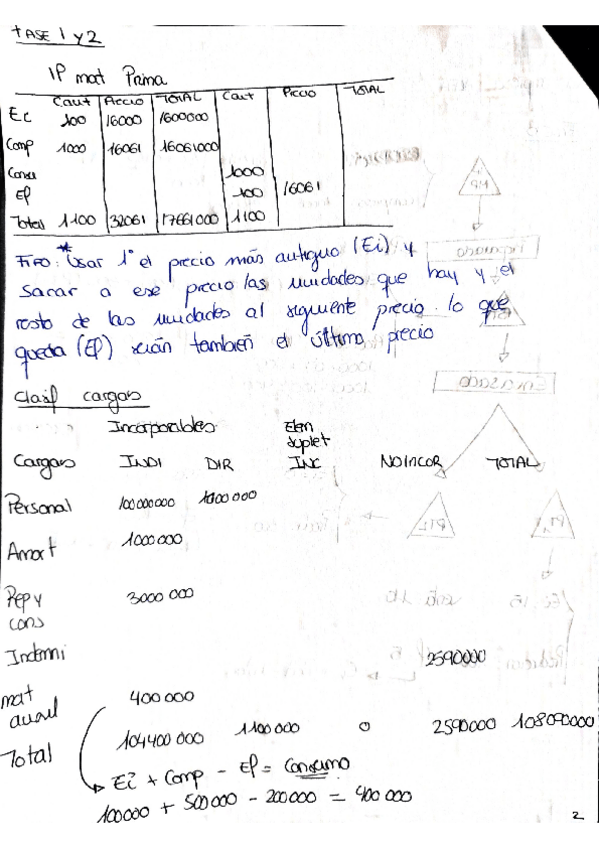 FASE 1 y 2
IP mat Prima
Cant Precio TOTAL Cant Precio TOTAL
Ei 100 16000 1600000
Comp 1000 16061 16061000
Consu 1000
Ef 100 16061
Total 1100 32061 17661000 1100
FIFO: * Usar 1º el precio más antiguo (Ei) y
sacar a ese precio las unidades que hay y el
resto de las unidades al siguiente precio. lo que
queda (Ef) serán también el último precio
Clasif cargas
Incorporables Elem
suplet
Cargas INDI DIR INC NO INCOR TOTAL
Personal 100000000
Amort 1000000
Rep y 3000 000
cons
Indemni 2590000
mat 400 000
auxil
Total 104400 000 1100 000 0 2590000 108090000
Ei + Comp - Ef = Consumo
100000 + 500000 - 200000 = 400 000
2